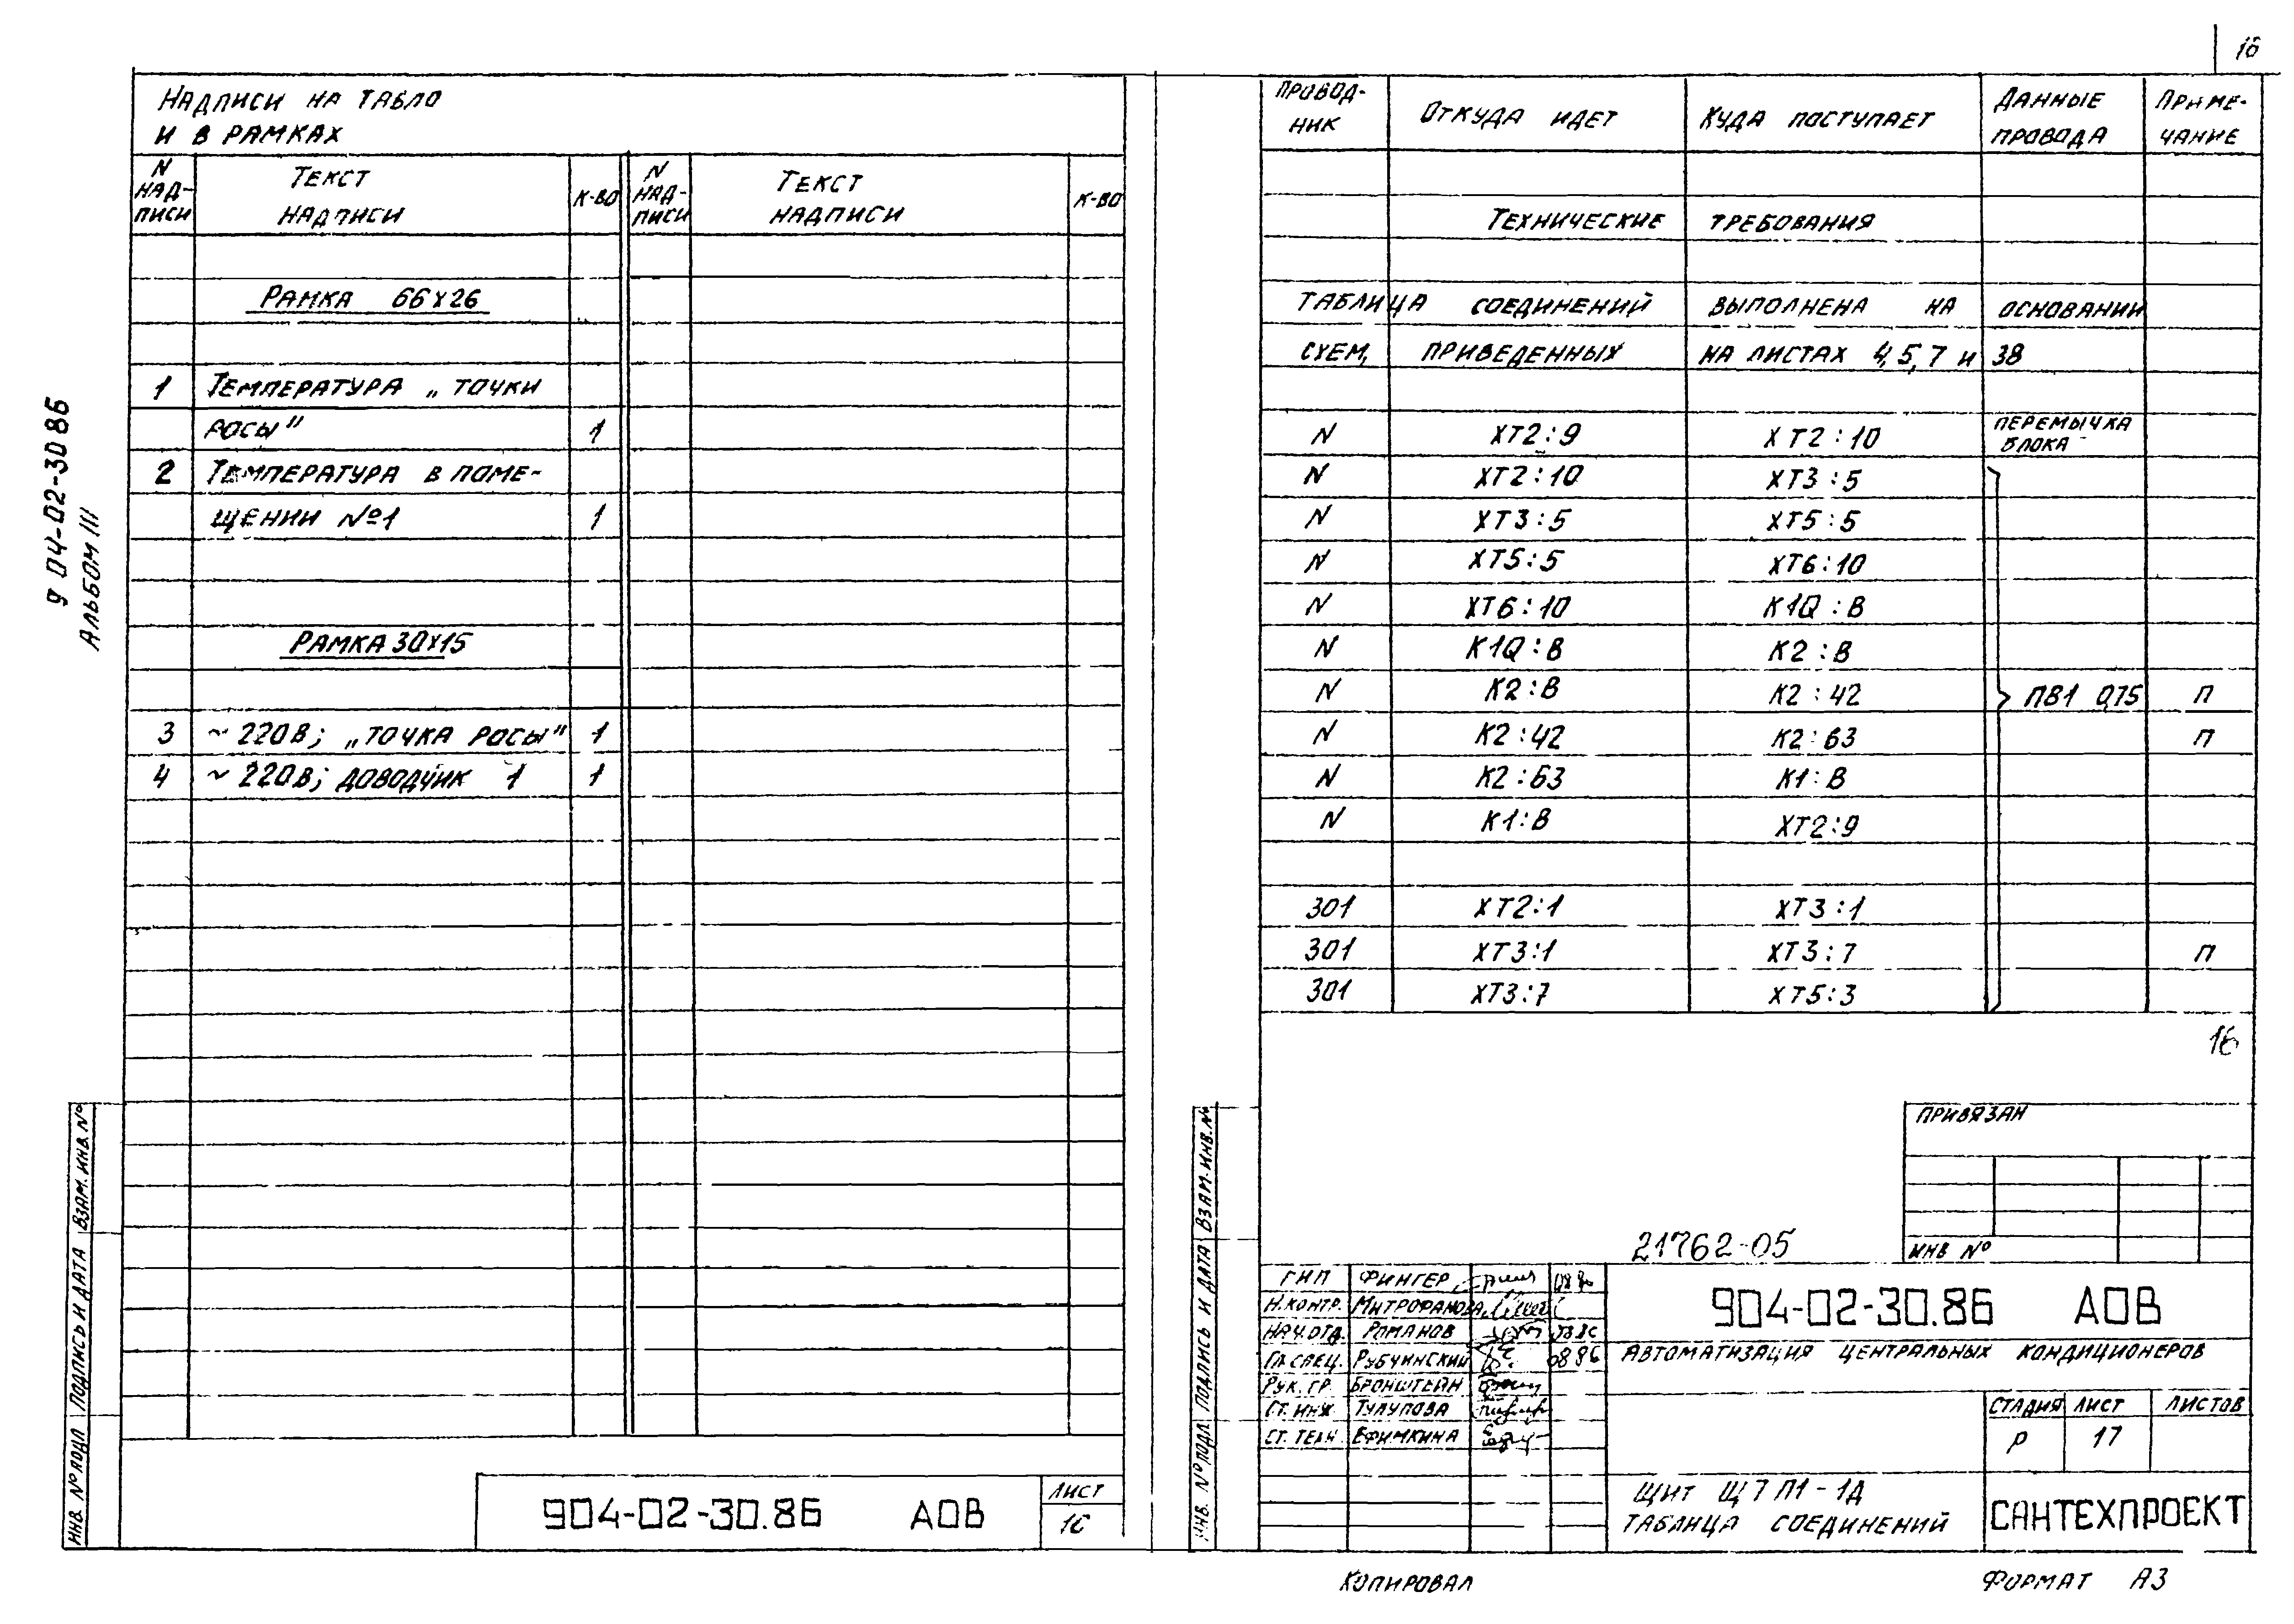 16
904-02-30 86
АЛЬБОМ III
НАДПИСИ НА ТАБЛО
И В РАМКАХ
N НАД-ПИСИ ТЕКСТ НАДПИСИ К-ВО N НАД-ПИСИ ТЕКСТ НАДПИСИ К-ВО
РАМКА 66Х26
1 ТЕМПЕРАТУРА „ТОЧКИ
РОСЫ" 1
2 ТЕМПЕРАТУРА В ПОМЕ-
ЩЕНИИ №1 1
РАМКА 30Х15
3 ~220В; „ТОЧКА РОСЫ" 1
4 ~220В; ДОВОДЧИК 1 1
ИНВ. № ПОДЛ ПОДПИСЬ И ДАТА ВЗАМ. ИНВ. №
904-02-30.86 АОВ
ЛИСТ
16
ПРОВОД-НИК ОТКУДА ИДЕТ КУДА ПОСТУПАЕТ ДАННЫЕ ПРОВОДА ПРИМЕ-ЧАНИЕ
ТЕХНИЧЕСКИЕ ТРЕБОВАНИЯ
ТАБЛИЦА СОЕДИНЕНИЙ ВЫПОЛНЕНА НА ОСНОВАНИИ
СХЕМ, ПРИВЕДЕННЫХ НА ЛИСТАХ 4, 5, 7 И 38
N ХТ2:9 ХТ2:10 ПЕРЕМЫЧКА БЛОКА
N ХТ2:10 ХТ3:5
N ХТ3:5 ХТ5:5
N ХТ5:5 ХТ6:10
N ХТ6:10 К1Q:В
N К1Q:В К2:В
N К2:В К2:42 ПВ1 0,75 П
N К2:42 К2:63 П
N К2:63 К1:В
N К1:В ХТ2:9
301 ХТ2:1 ХТ3:1
301 ХТ3:1 ХТ3:7 П
301 ХТ3:7 ХТ5:3
16
ПРИВЯЗАН
ИНВ №
21762-05
ИНВ. № ПОДЛ ПОДПИСЬ И ДАТА ВЗАМ. ИНВ. №
ГИП ФИНГЕР
Н.КОНТР. МИТРОФАНОВА
НАЧ.ОТД. РОМАНОВ
ГЛ.СПЕЦ. РУБЧИНСКИЙ 08 86
РУК. ГР. БРОНШТЕЙН
СТ. ИНЖ ТУЛУПОВА
СТ. ТЕХН. ЕФИМКИНА
904-02-30.86 АОВ
АВТОМАТИЗАЦИЯ ЦЕНТРАЛЬНЫХ КОНДИЦИОНЕРОВ
СТАДИЯ ЛИСТ ЛИСТОВ
Р 17
ЩИТ Щ7П1-1Д
ТАБЛИЦА СОЕДИНЕНИЙ
САНТЕХПРОЕКТ
КОПИРОВАЛ ФОРМАТ А3